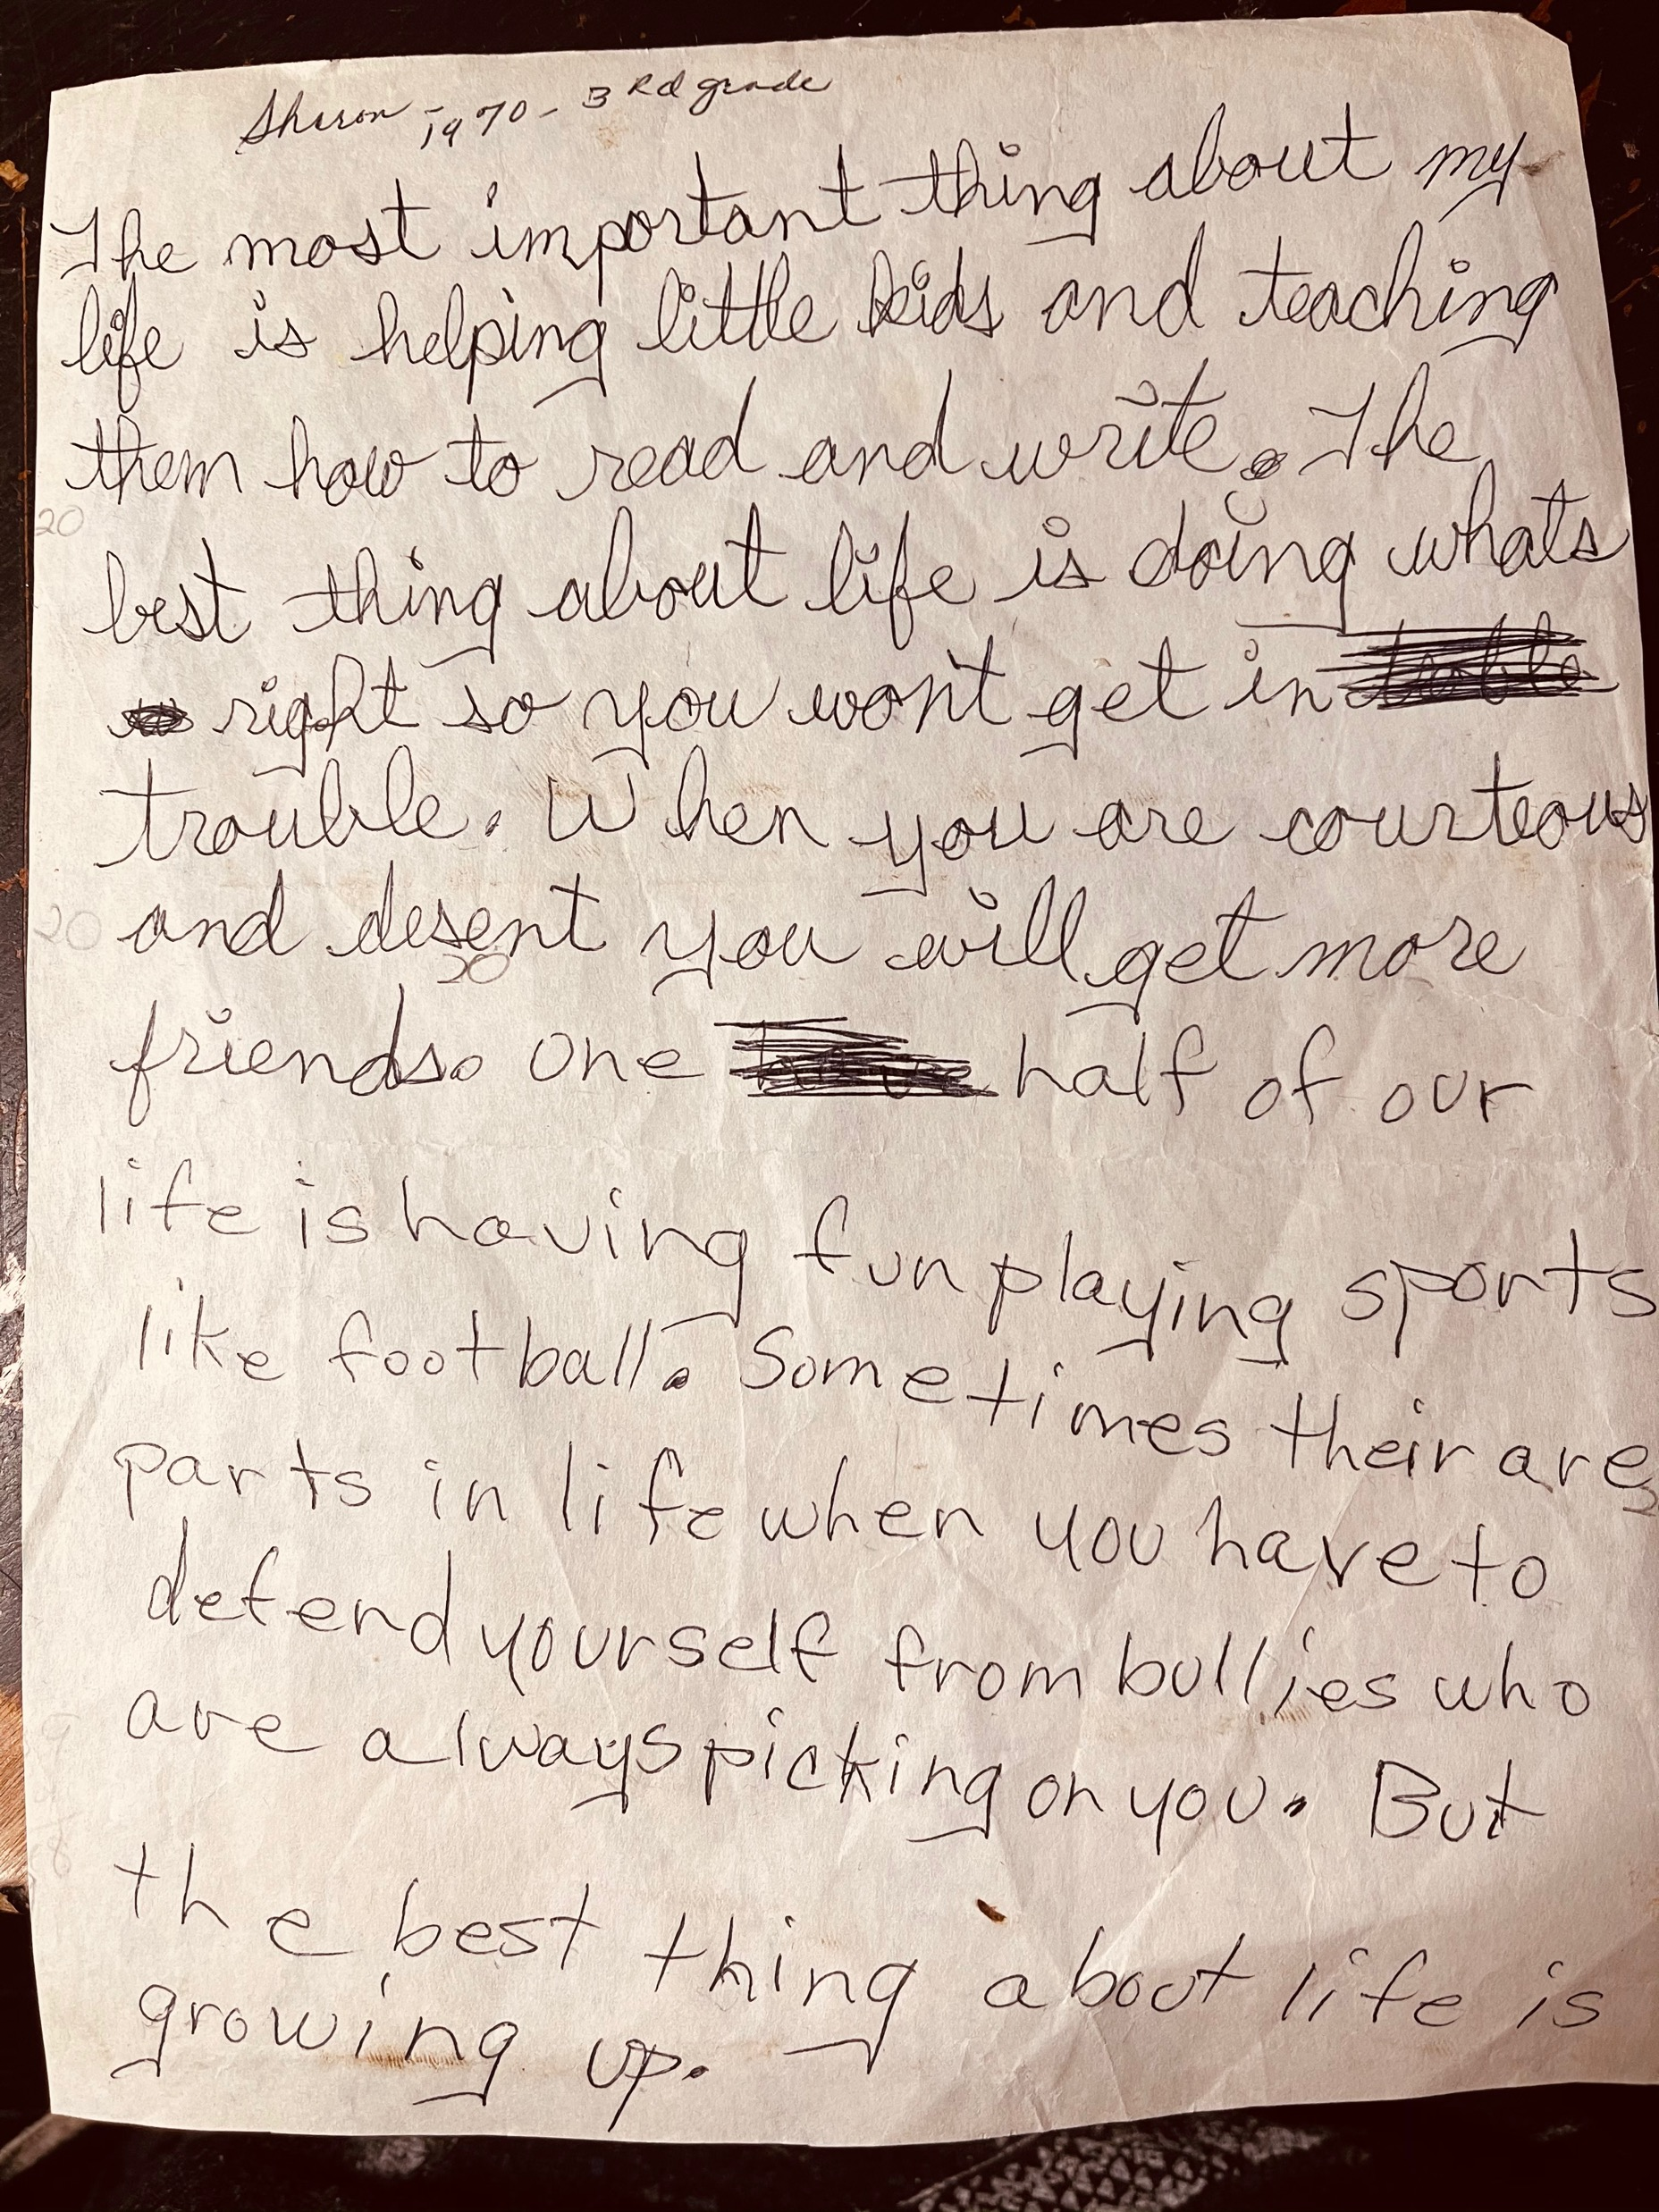 Sharon - 1970 - 3rd grade
The most important thing about my
life is helping little kids and teaching
them how to read and write. The
20
best thing about life is doing whats
right so you won't get in
trouble. When you are courteous
20 and desent you will get more
20
friends. One half of our
life is having fun playing sports
like football. Sometimes their are
parts in life when you have to
defend yourself from bullies who
are always picking on you. But
the best thing about life is
growing up.